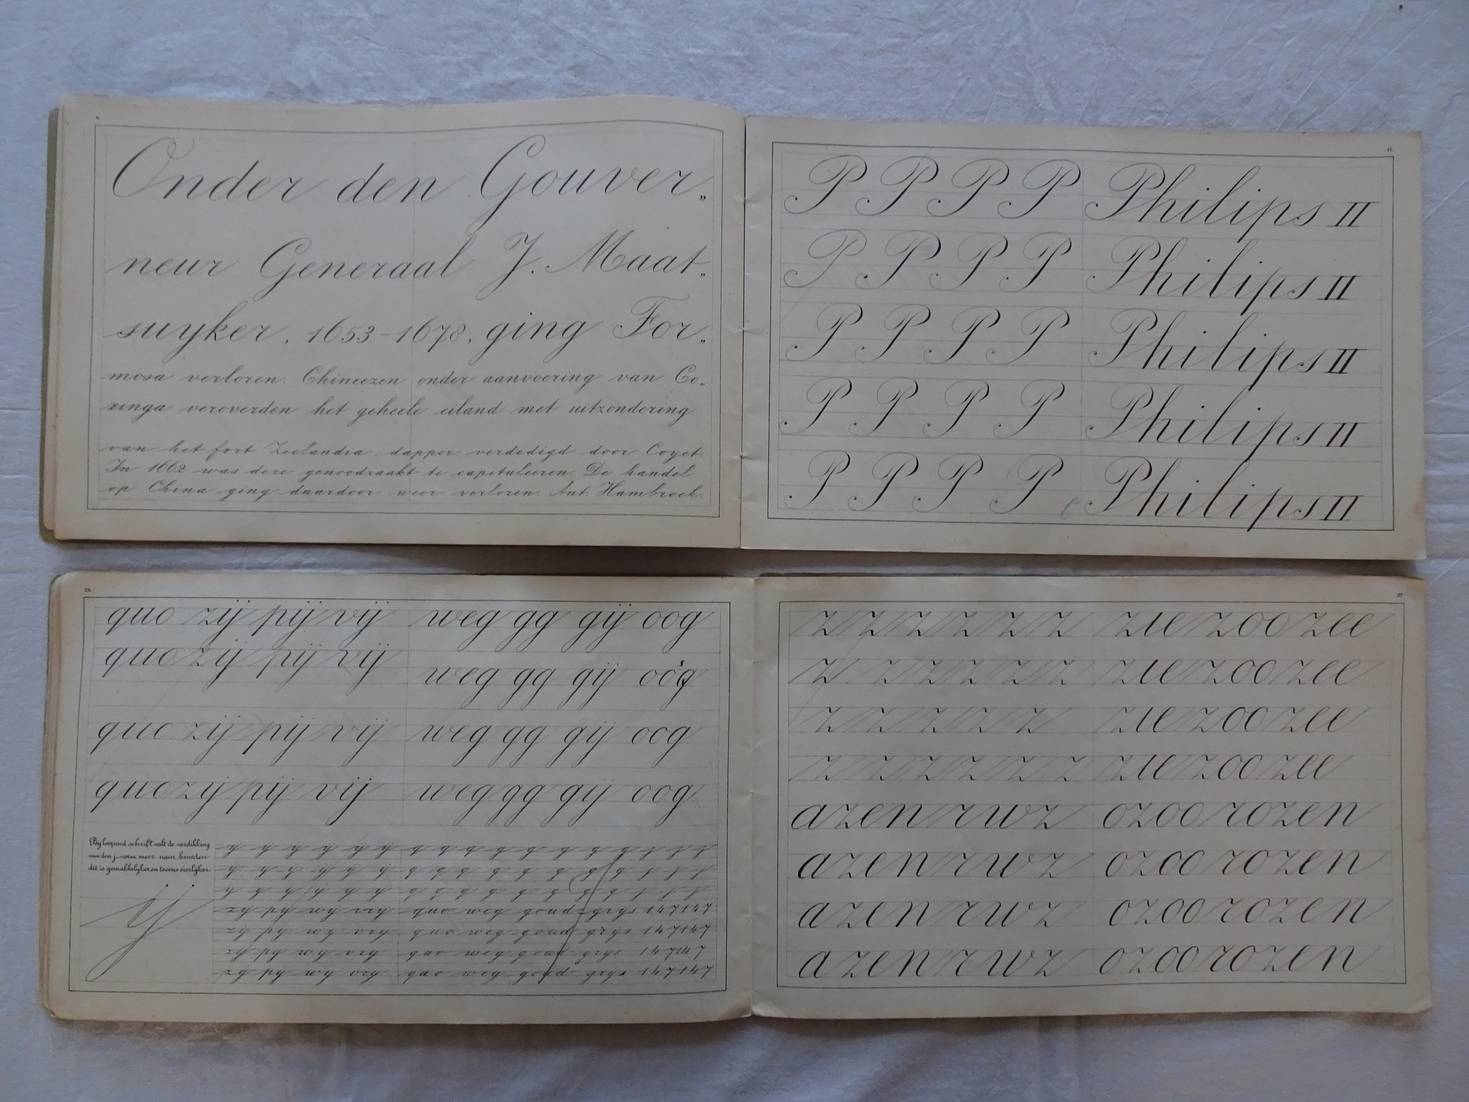 Onder den Gouver„
neur Generaal J. Maat„
suyker, 1653-1678, ging For„
mosa verloren. Chineezen onder aanvoering van Co„
xinga veroverden het geheele eiland met uitzondering
van het fort Zeelandia, dapper verdedigd door Coyet.
In 1662 was deze genoodzaakt te capituleeren. De handel
op China ging daardoor weer verloren. Ant. Hambroek.
P P P P Philips II
P P P P Philips II
P P P P Philips II
P P P P Philips II
P P P P Philips II
quo zij pij vij weg gg gij oog
quo zij pij vij weg gg gij oog
quo zij pij vij weg gg gij oog
quo zij pij vij weg gg gij oog
Bij loopend schrift valt de verdikking
van den j
dit is gemakkelijker en tevens sierlijker.
ij
zy py wy vry quo weg goud grys 147147
zy py wy vry quo weg goud grys 147147
zy py wy vry quo weg goud grys 147147
zy py wy vry quo weg goud grys 147147
27
z z z z z z zie zoo zee
z z z z z z zie zoo zee
z z z z z zie zoo zee
z z z z z z zie zoo zee
azen rwz ozoo rozen
azen rwz ozoo rozen
azen rwz ozoo rozen
azen rwz ozoo rozen